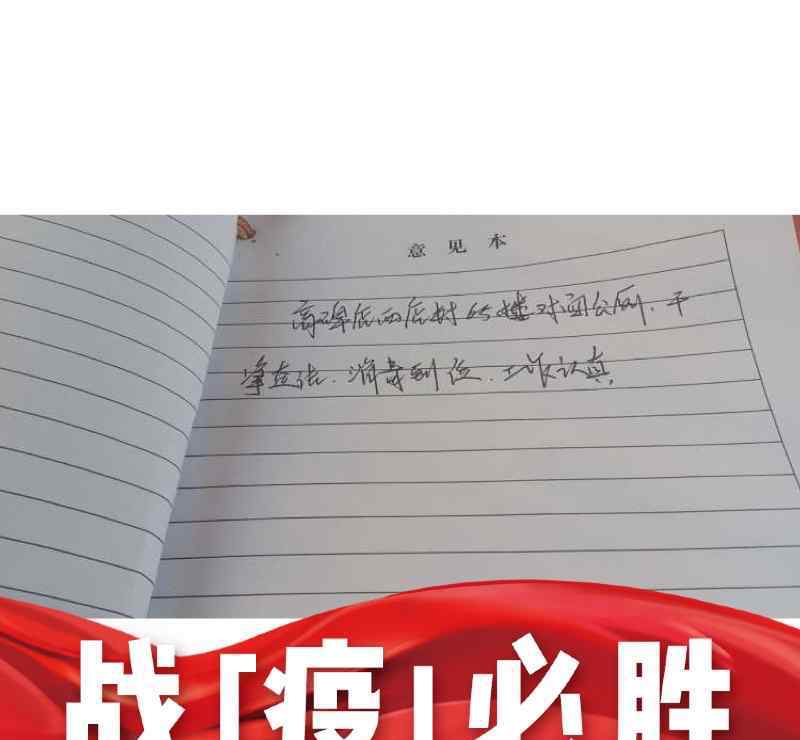 意见本
高碑店西店村65楼对面公厕.干
净整洁.消毒到位.工作认真,
战「疫」必胜